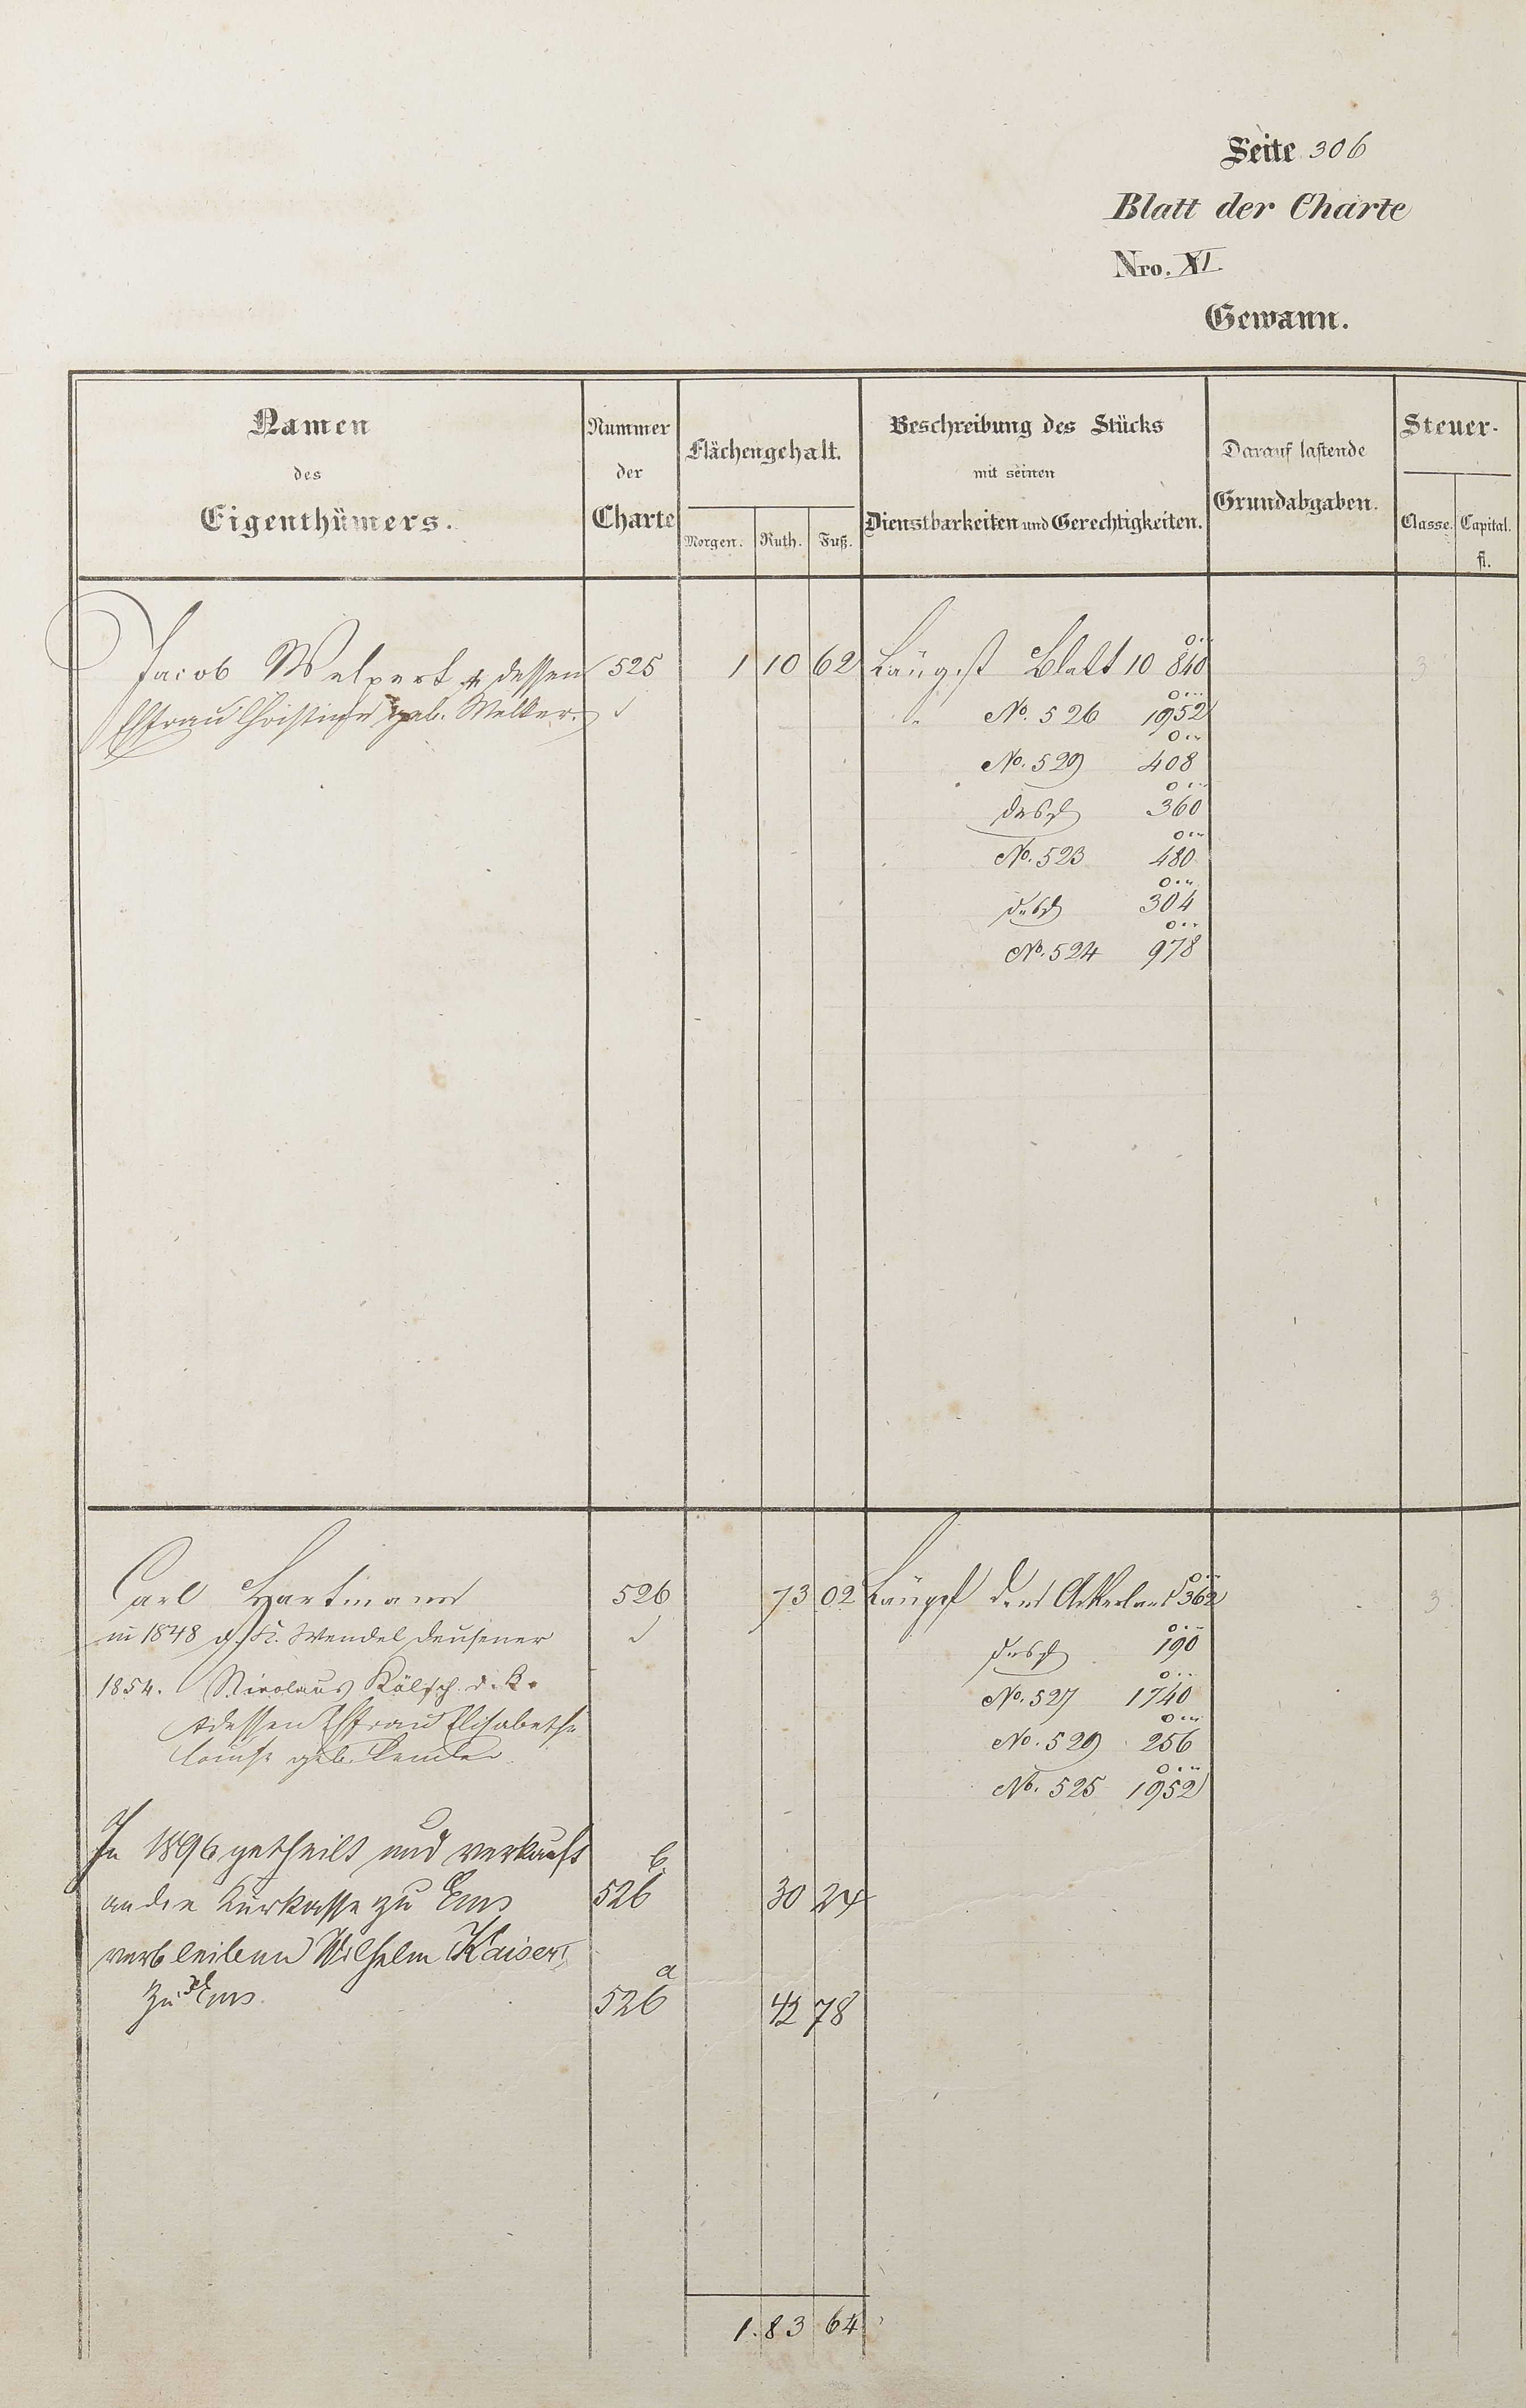 Seite 306
Blatt der Charte
Nro. XI
Gewann.
Namen des Eigenthümers.
Nummer der Charte
Flächengehalt.
Morgen. Ruth. Fuß.
Beschreibung des Stücks mit seinen Dienstbarkeiten und Gerechtigkeiten.
Darauf lastende Grundabgaben.
Steuer-
Classe. Capital. fl.
Jacob Welpert & dessen 525 1 10 62 Längst Blatt 10 840 3
Ehfrau Christine geb. Welker. " No. 526 1952
No. 529 408
desgl 360
No. 523 480
desgl 304
No. 524 978
Carl Hartmann 526 73 02 Längst dem Ackerland 362 3
in 1848 d. K. Wendel Deusener desgl 190
1854. Nicolaus Kölsch d. K. No. 527 1740
& dessen Ehfrau Elisabethe No. 529 256
Louise geb. No. 525 1952
In 1896 getheilt und verkauft
an die Kurkasse zu Ems 526 b 30 24
verbleiben Wilhelm Kaiser
zu Ems 526 a 42 78
1. 83 64